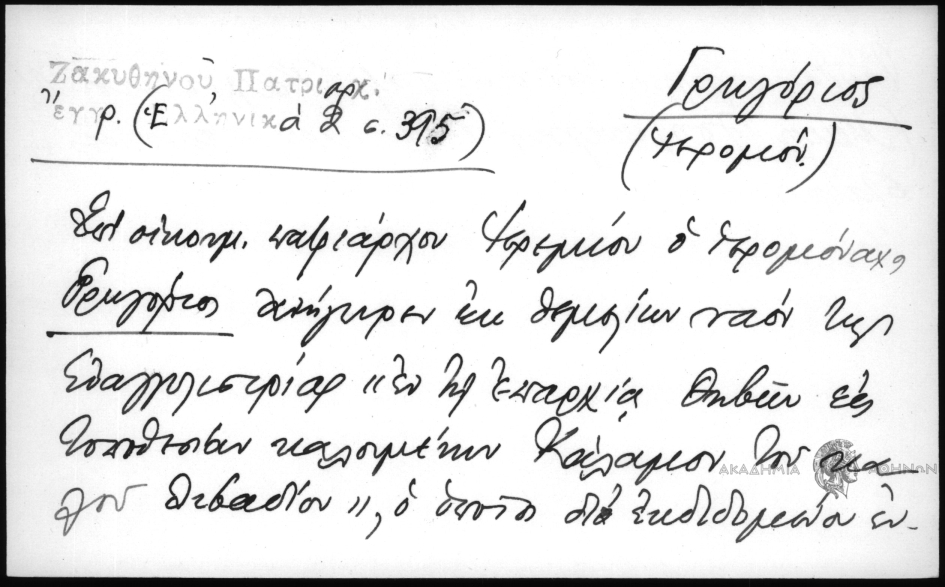 Ζακυθηνοῦ, Πατριαρχ.
ἔγγρ. (Ἑλληνικά 2 σ. 315)
Γρηγόριος
(Ἱερομόν.)
Ἐπί οἰκουμ. πατριάρχου Ἱερεμίου ὁ Ἱερομόναχος
Γρηγόριος ἀνήγειρεν ἐκ θεμελίων ναόν τῆς
Εὐαγγελιστρίας "ἐν τῇ ἐπαρχίᾳ Θηβῶν εἰς
τοποθεσίαν καλουμένην Κάλαμον τοῦ κα-
λοῦ Λιβαδίου", ὁ ὁποῖος δι' ἐκδιδομένου ἐν-
ΑΚΑΔΗΜΙΑ ΑΘΗΝΩΝ